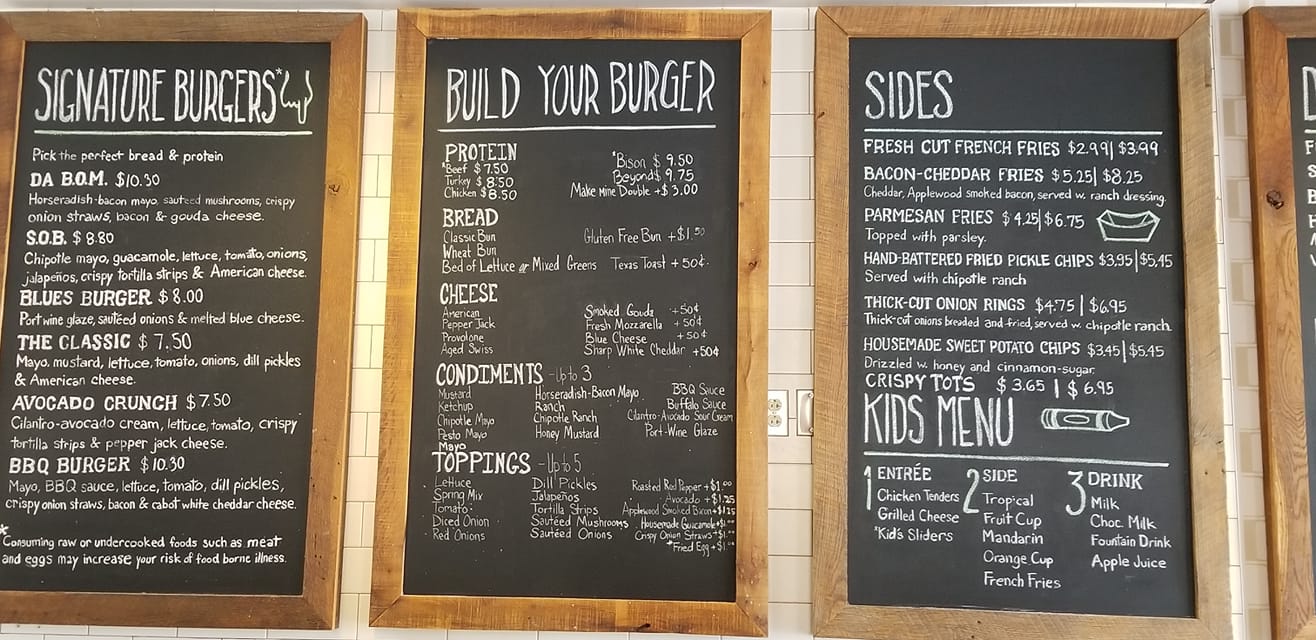 SIGNATURE BURGERS*
Pick the perfect bread & protein
DA B.O.M. $10.30
Horseradish-bacon mayo, sauteed mushrooms, crispy
onion straws, bacon & gouda cheese.
S.O.B. $8.80
Chipotle mayo, guacamole, lettuce, tomato, onions,
jalapeños, crispy tortilla strips & American cheese.
BLUES BURGER $8.00
Port wine glaze, sautéed onions & melted blue cheese.
THE CLASSIC $7.50
Mayo, mustard, lettuce, tomato, onions, dill pickles
& American cheese.
AVOCADO CRUNCH $7.50
Cilantro-avocado cream, lettuce, tomato, crispy
tortilla strips & pepper jack cheese.
BBQ BURGER $10.30
Mayo, BBQ sauce, lettuce, tomato, dill pickles,
crispy onion straws, bacon & cabot white cheddar cheese.
*Consuming raw or undercooked foods such as meat
and eggs may increase your risk of food borne illness.
BUILD YOUR BURGER
PROTEIN
*Beef $7.50
Turkey $8.50
Chicken $8.50
*Bison $9.50
Beyond $9.75
Make mine Double +$3.00
BREAD
Classic Bun
Wheat Bun
Bed of Lettuce or Mixed Greens
Gluten Free Bun +$1.50
Texas Toast +50¢
CHEESE
American
Pepper Jack
Provolone
Aged Swiss
Smoked Gouda +50¢
Fresh Mozzarella +50¢
Blue Cheese +50¢
Sharp White Cheddar +50¢
CONDIMENTS -Up to 3
Mustard
Ketchup
Chipotle Mayo
Pesto Mayo
Mayo
Horseradish-Bacon Mayo
Ranch
Chipotle Ranch
Honey Mustard
BBQ Sauce
Buffalo Sauce
Cilantro-Avocado Sour Cream
Port-Wine Glaze
TOPPINGS -Up to 5
Lettuce
Spring Mix
Tomato
Diced Onion
Red Onions
Dill Pickles
Jalapeños
Tortilla Strips
Sautéed Mushrooms
Sautéed Onions
Roasted Red Pepper +$1.00
Avocado +$1.25
Applewood Smoked Bacon +$1.75
Housemade Guacamole +$1.00
Crispy Onion Straws +$1.00
*Fried Egg +$1.00
SIDES
FRESH CUT FRENCH FRIES $2.99 | $3.99
BACON-CHEDDAR FRIES $5.25 | $8.25
Cheddar, Applewood smoked bacon, served w. ranch dressing.
PARMESAN FRIES $4.25 | $6.75
Topped with parsley.
HAND-BATTERED FRIED PICKLE CHIPS $3.95 | $5.45
Served with chipotle ranch
THICK-CUT ONION RINGS $4.75 | $6.95
Thick-cut onions breaded and fried, served w. chipotle ranch.
HOUSEMADE SWEET POTATO CHIPS $3.45 | $5.45
Drizzled w. honey and cinnamon-sugar.
CRISPY TOTS $3.65 | $6.95
KIDS MENU
1 ENTRÉE
Chicken Tenders
Grilled Cheese
*Kid's Sliders
2 SIDE
Tropical
Fruit Cup
Mandarin
Orange Cup
French Fries
3 DRINK
Milk
Choc. Milk
Fountain Drink
Apple Juice